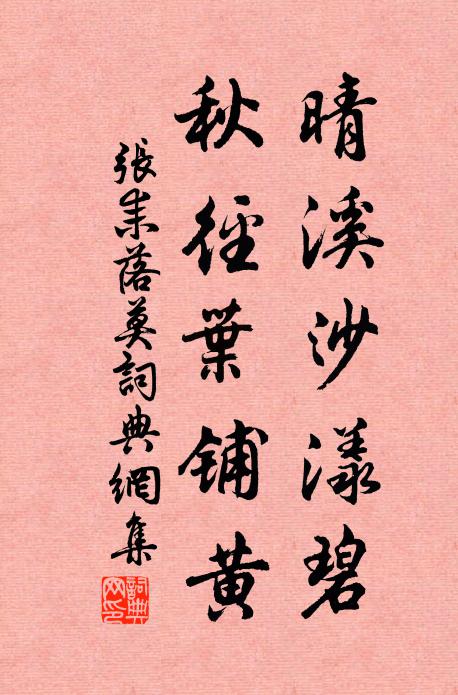 晴溪沙漾碧
秋徑葉鋪黃
張耒落英詞典網集
詞典網印